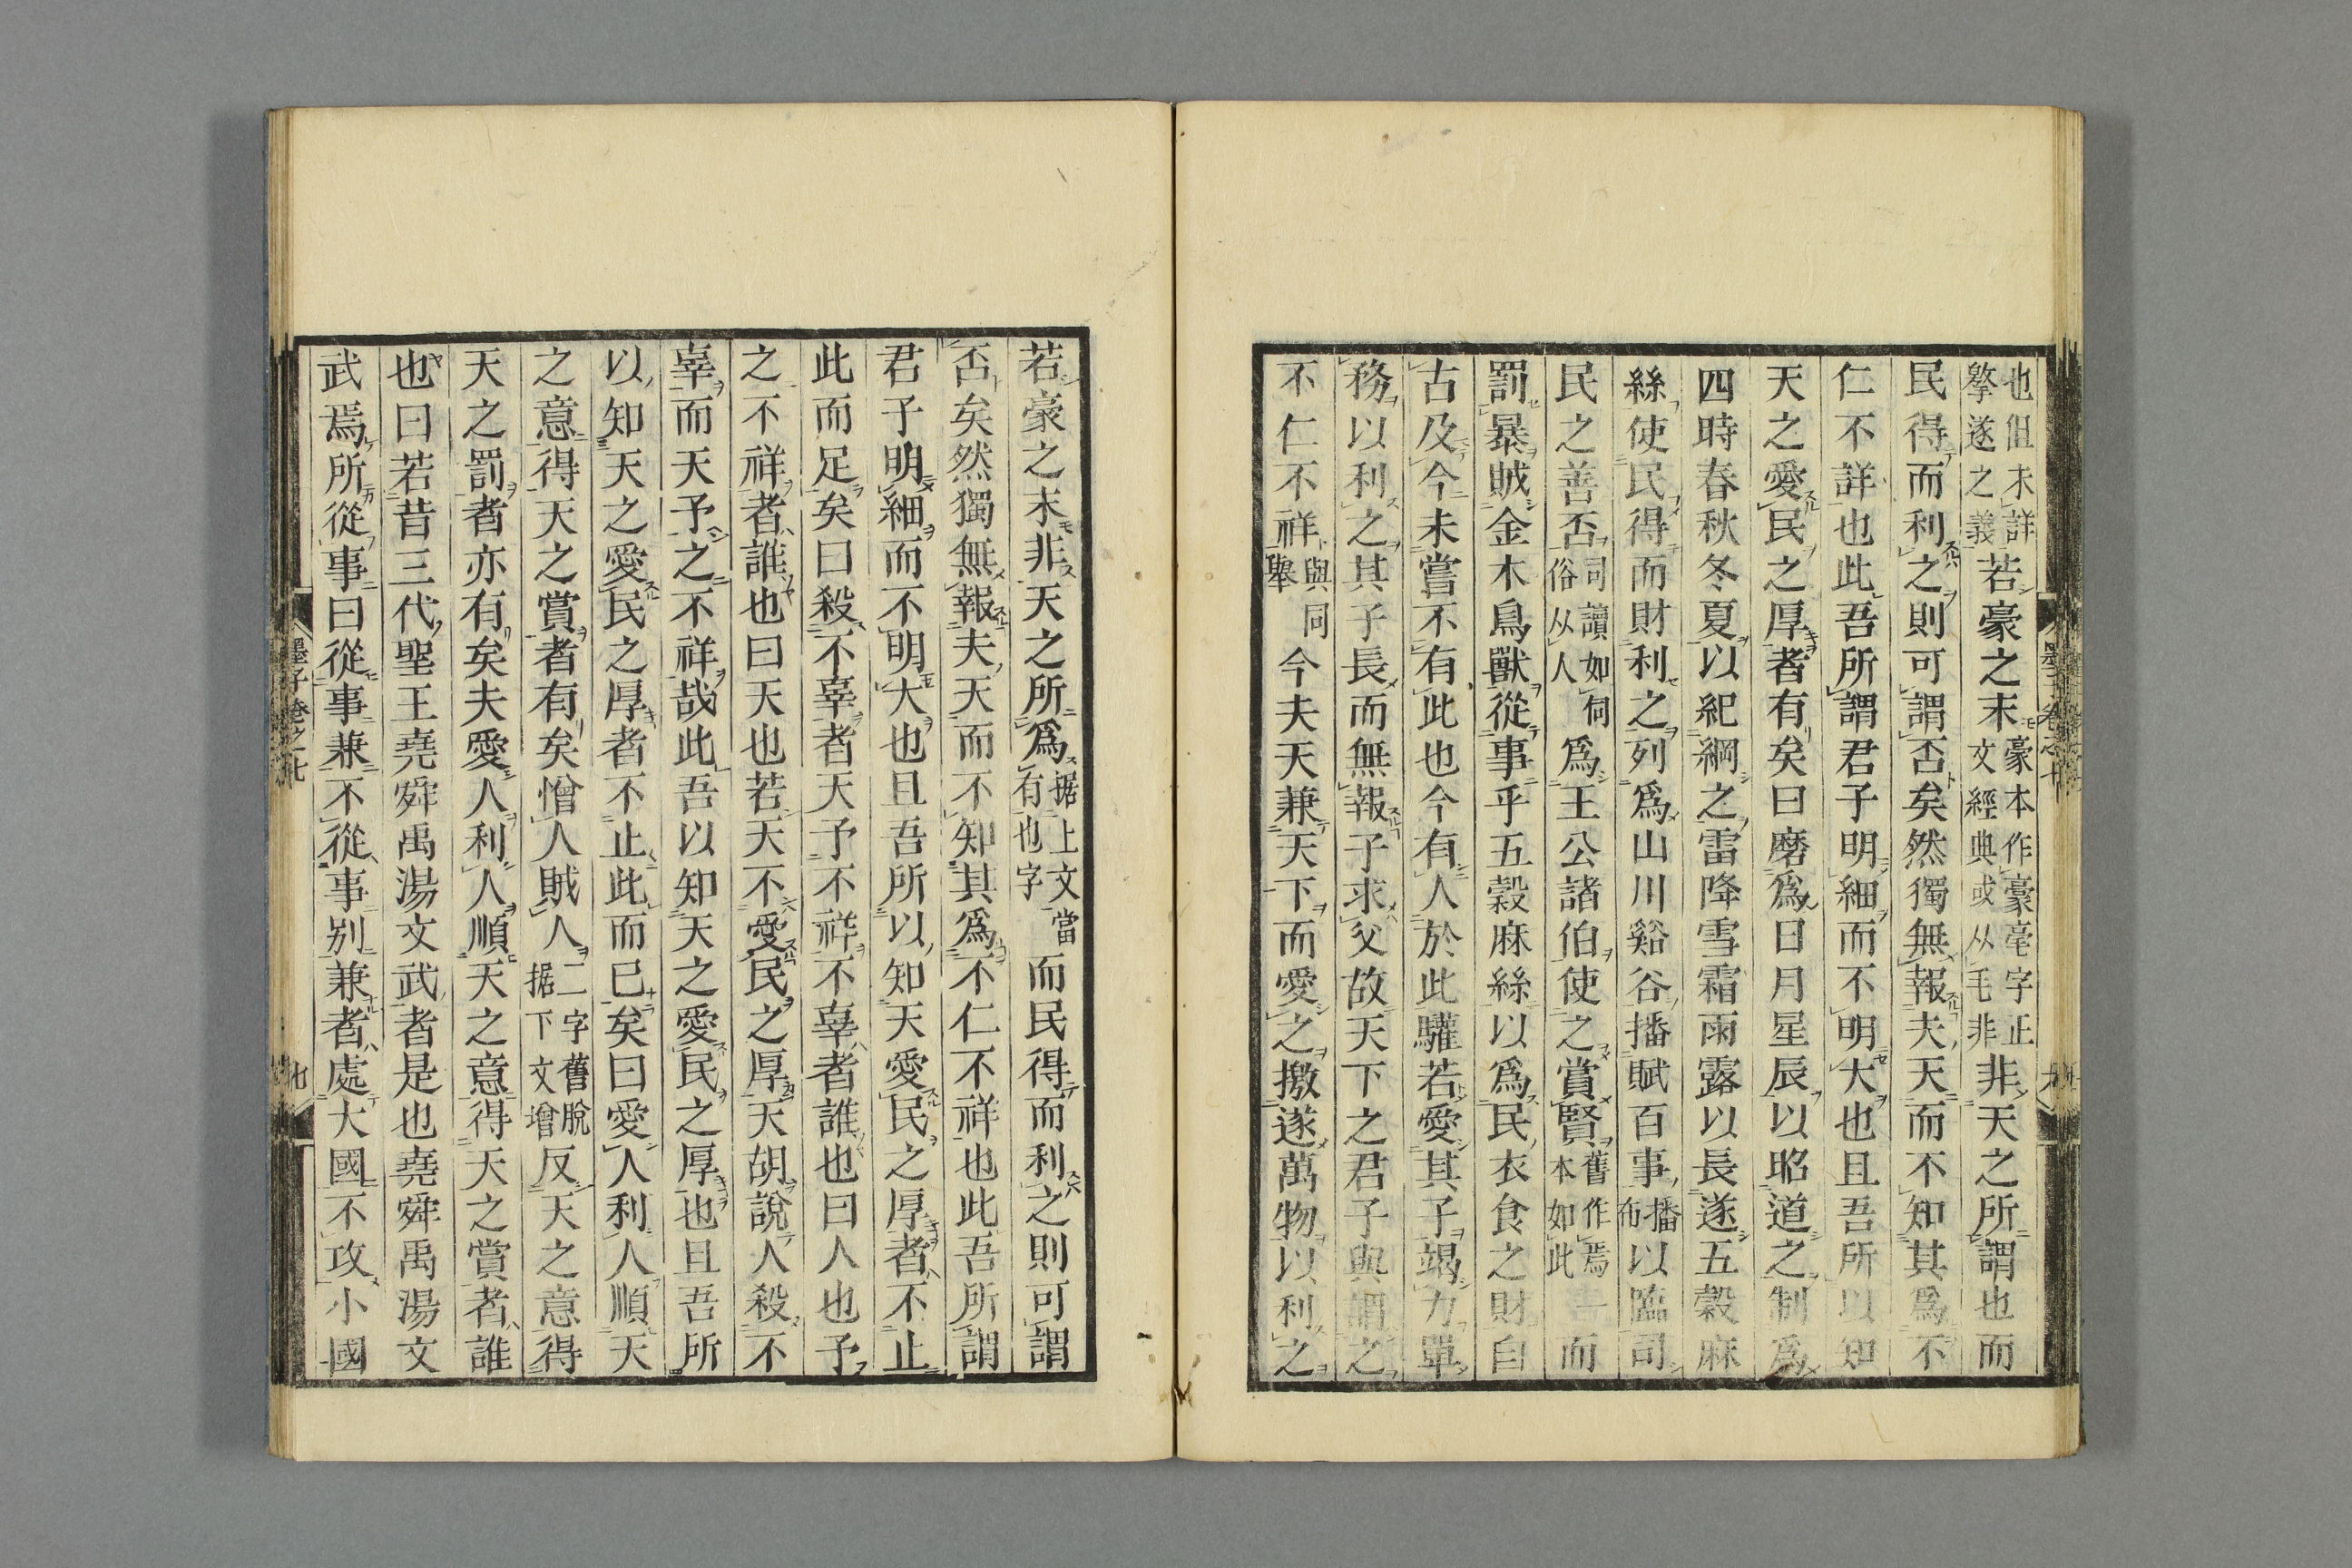 也但未詳擎遂之義若豪之末豪本作豪毫字正文經典或从毛非非天之所謂也而
民得而利之則可謂否矣然獨無報夫天而不知其爲不
仁不詳也此吾所謂君子明細而不明大也且吾所以知
天之愛民之厚者有矣曰磨爲日月星辰以昭道之制爲
四時春秋冬夏以紀綱之雷降雪霜雨露以長遂五穀麻
絲使民得而財利之列爲山川谿谷播賦百事播布以臨司
民之善否司讀如伺俗从人爲王公諸伯使之賞賢舊作焉一本如此而
罰暴賊金木鳥獸從事乎五穀麻絲以爲民衣食之財自
古及今未嘗不有此也今有人於此驩若愛其子竭力單
務以利之其子長而無報子求父故天下之君子與謂之
不仁不祥與同舉今夫天兼天下而愛之撽遂萬物以利之
若豪之末非天之所爲据上文當有也字而民得而利之則可謂
否矣然獨無報夫天而不知其爲不仁不祥也此吾所謂
君子明細而不明大也且吾所以知天愛民之厚者不止
此而足矣曰殺不辜者天予不祥不辜者誰也曰人也予
之不祥者誰也曰天也若天不愛民之厚天胡說人殺不
辜而天予之不祥哉此吾以知天之愛民之厚也且吾所
以知天之愛民之厚者不止此而已矣曰愛人利人順天
之意得天之賞者有矣憎人賊人二字舊脫据下文增反天之意得
天之罰者亦有矣夫愛人利人順天之意得天之賞者誰
也曰若昔三代聖王堯舜禹湯文武者是也堯舜禹湯文
武焉所從事曰從事兼不從事別兼者處大國不攻小國
墨子卷之七
七